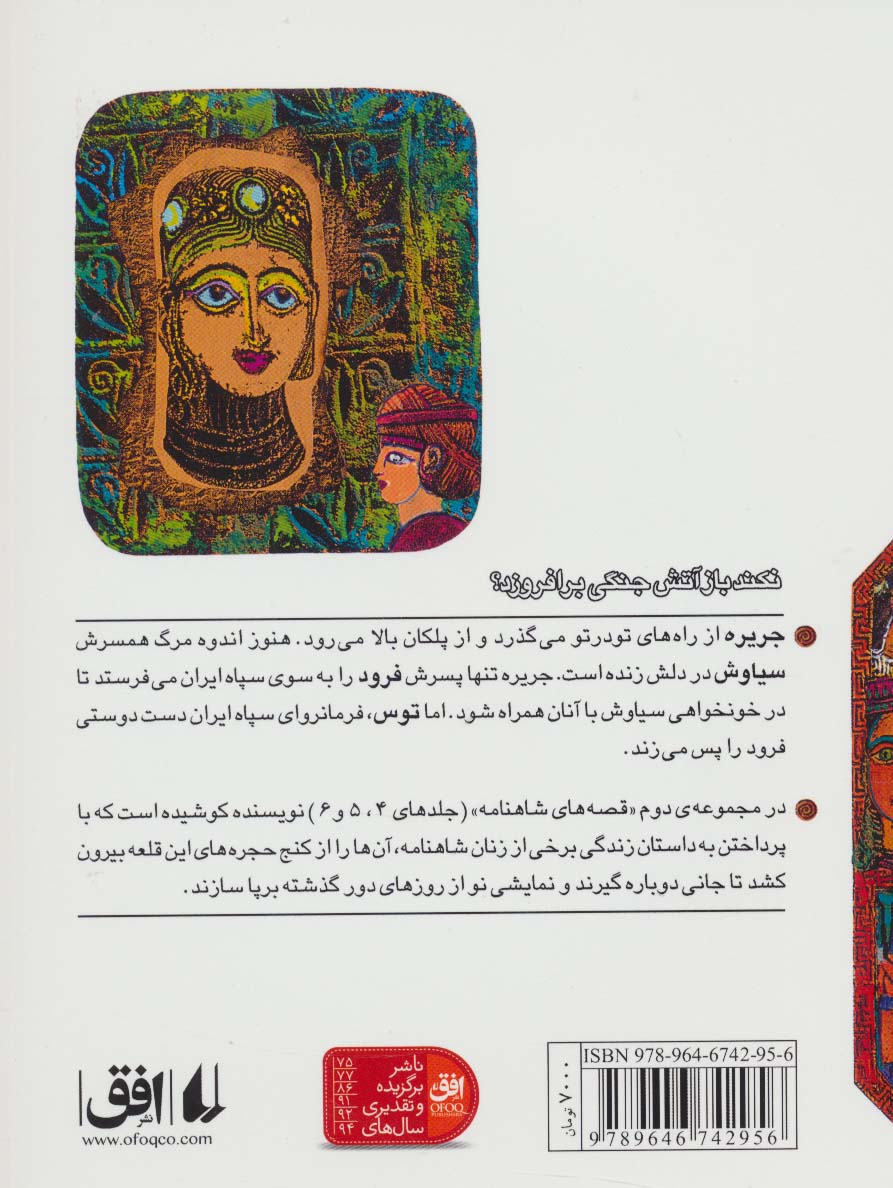 نکند باز آتش جنگی برافروزد؟
جریره از راه‌های تودرتو می‌گذرد و از پلکان بالا می‌رود. هنوز اندوه مرگ همسرش
سیاوش در دلش زنده است. جریره تنها پسرش فرود را به سوی سپاه ایران می‌فرستد تا
در خونخواهی سیاوش با آنان همراه شود. اما توس، فرمانروای سپاه ایران دست دوستی
فرود را پس می‌زند.
در مجموعه‌ی دوم «قصه‌های شاهنامه» (جلدهای ۴، ۵ و ۶) نویسنده کوشیده است که با
پرداختن به داستان زندگی برخی از زنان شاهنامه، آن‌ها را از کنج حجره‌های این قلعه بیرون
کشد تا جانی دوباره گیرند و نمایشی نو از روزهای دور گذشته برپا سازند.
ISBN 978-964-6742-95-6
۷۰۰۰ تومان
9 789646 742956
ناشر
برگزیده
و تقدیری
سال‌های
۷۵
۷۷
۸۶
۹۱
۹۳
۹۴
افق
نشر
OFOQ
PUBLISHERS
نشر
افق
www.ofoqco.com